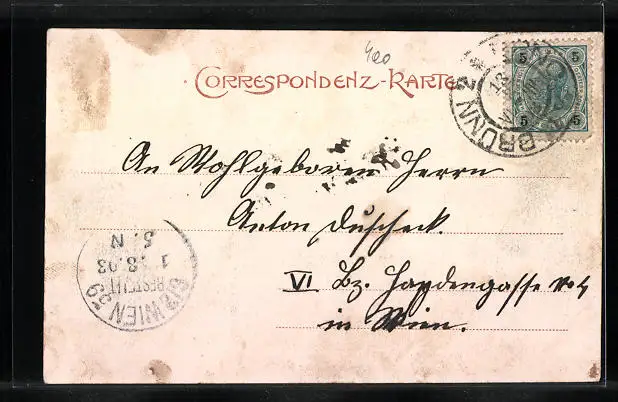 400
CORRESPONDENZ-KARTE
5 5
5 5
BRÜNN 2 *
An Wohlgeboren Herrn
Anton Duscheck.
VI Bz. Haydengasse No 4
in Wien.
6/2 WIEN 59
BESTELLT
1. 8. 03
5. N